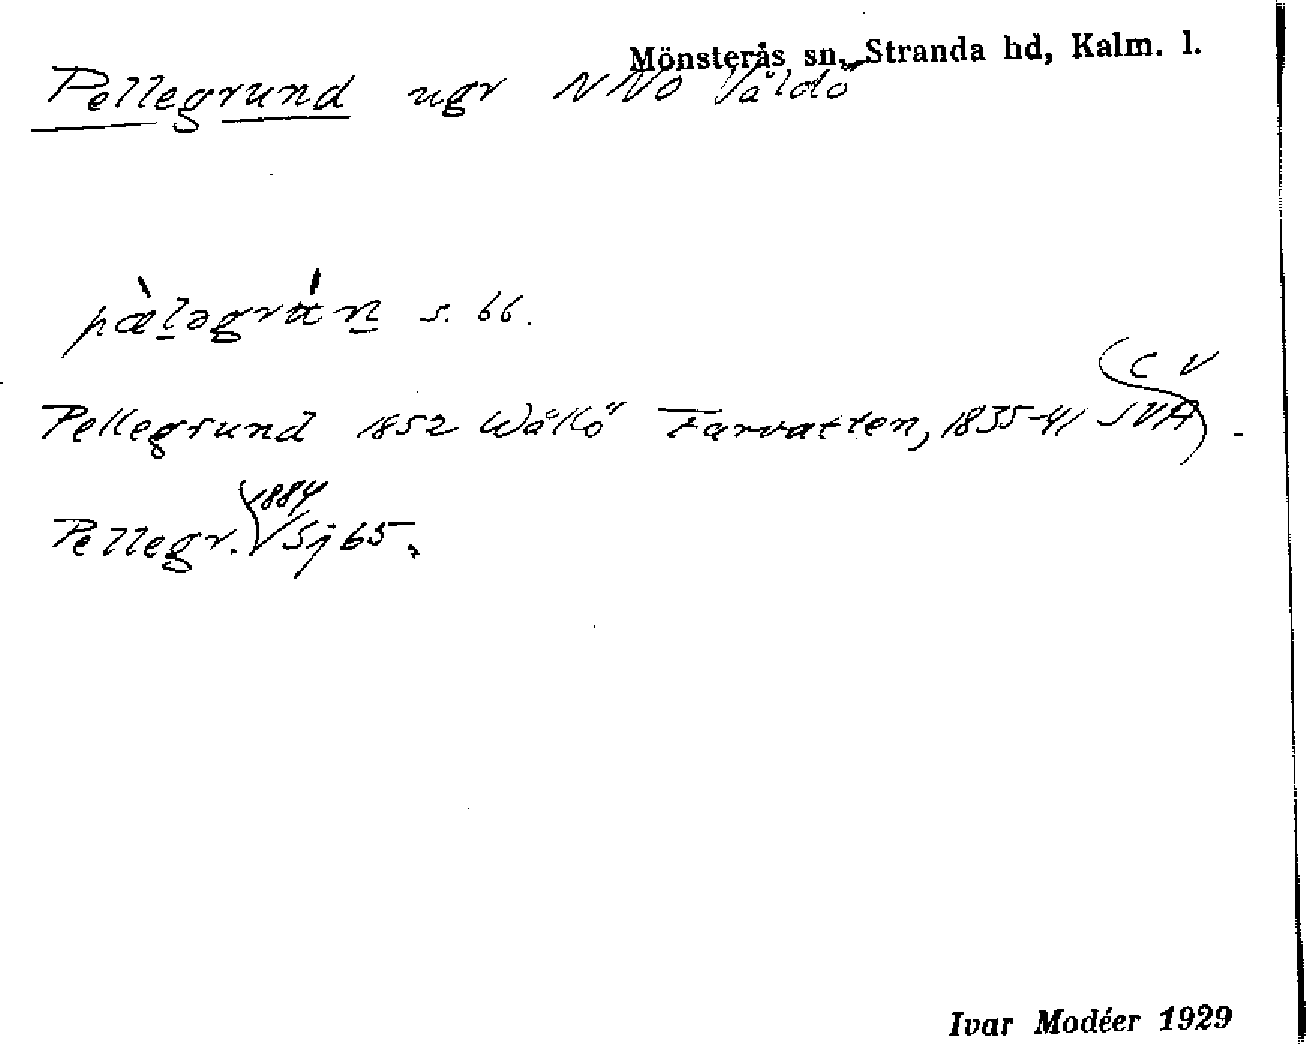 Mönsterås sn, Stranda hd, Kalm. l.
Pellegrund ugr NNO Våldö
pæ̀lǝgrán s. 66.
Pellegrund 1852 Wållö Farvatten, 1835-41 SVA (CV) .
Pellegr. 1884 Sj 65.
Ivar Modéer 1929